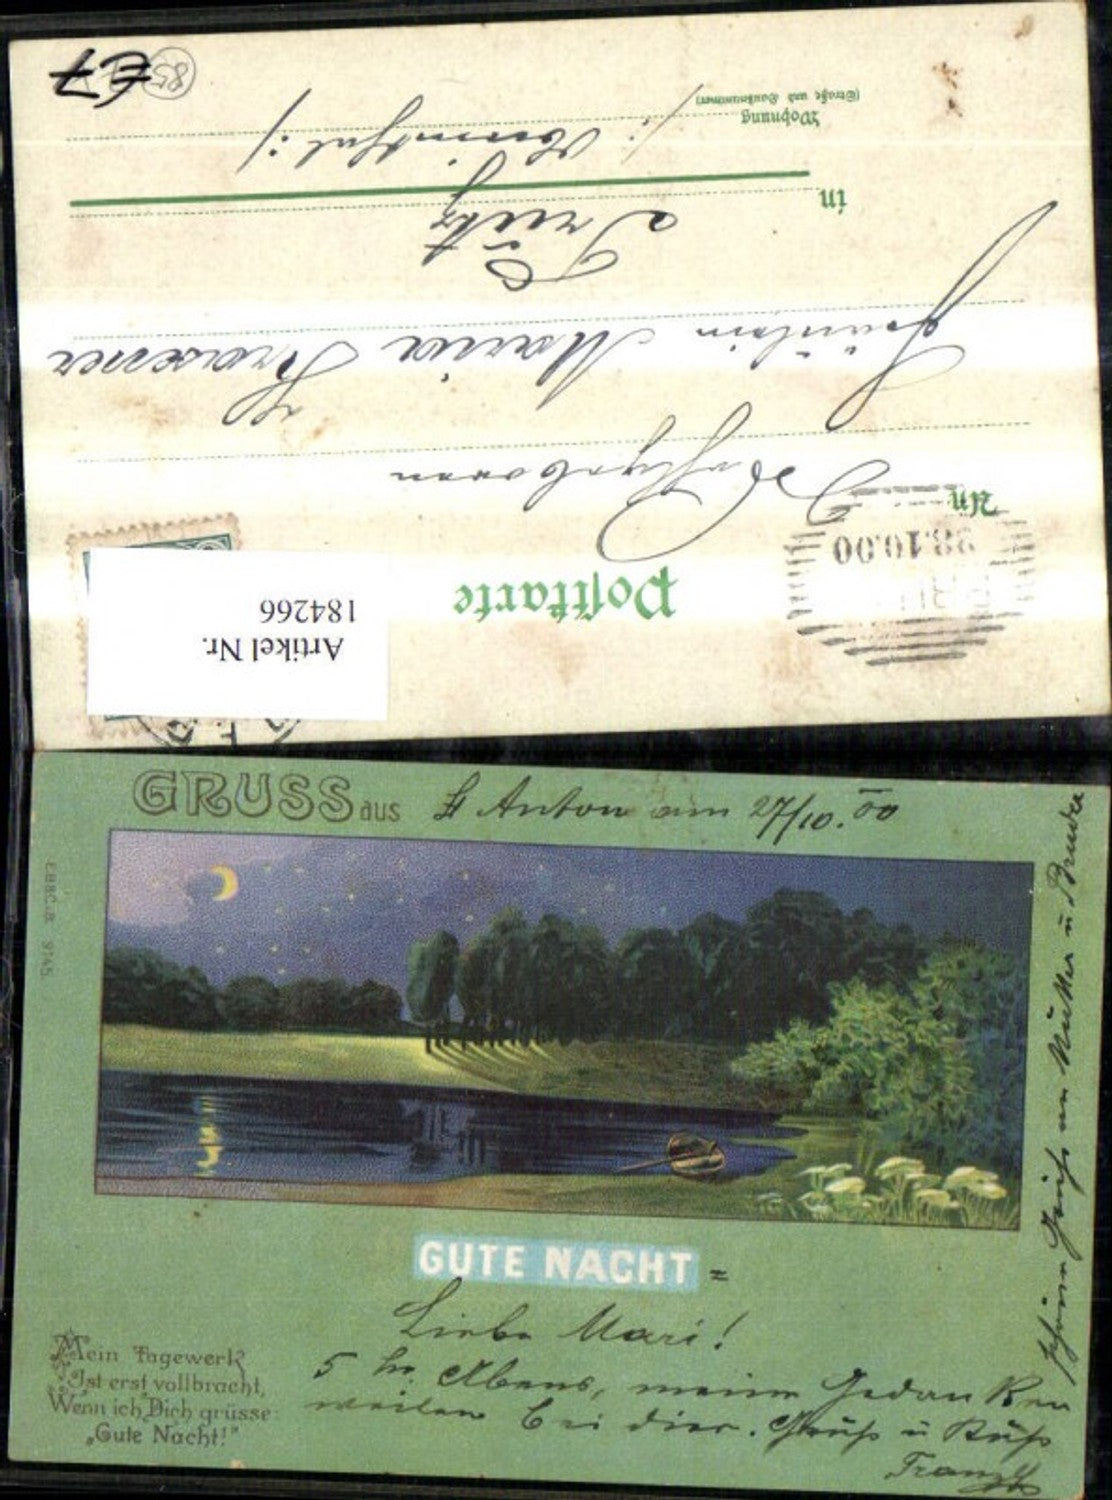 €7
85
Wohnung
(Straße und Hausnummer)
in
Fräulein Maria
Wohlgeboren
An
28.10.00
Postkarte
184266
Artikel Nr.
GRUSS aus St Anton am 27/10.00
E.B.&C.i.B. 9745.
GUTE NACHT =
Liebe Mari!
5 Abens, meine Gedanken
weilen bei dier. Gruß u Kuß
Franz
schönen Gruß an Mutter u Bruder
Mein Tagewerk
Ist erst vollbracht,
Wenn ich Dich grüsse:
„Gute Nacht!"